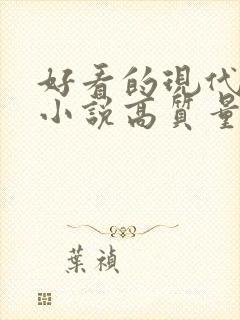 好看的現代
小說高質量
葉禎